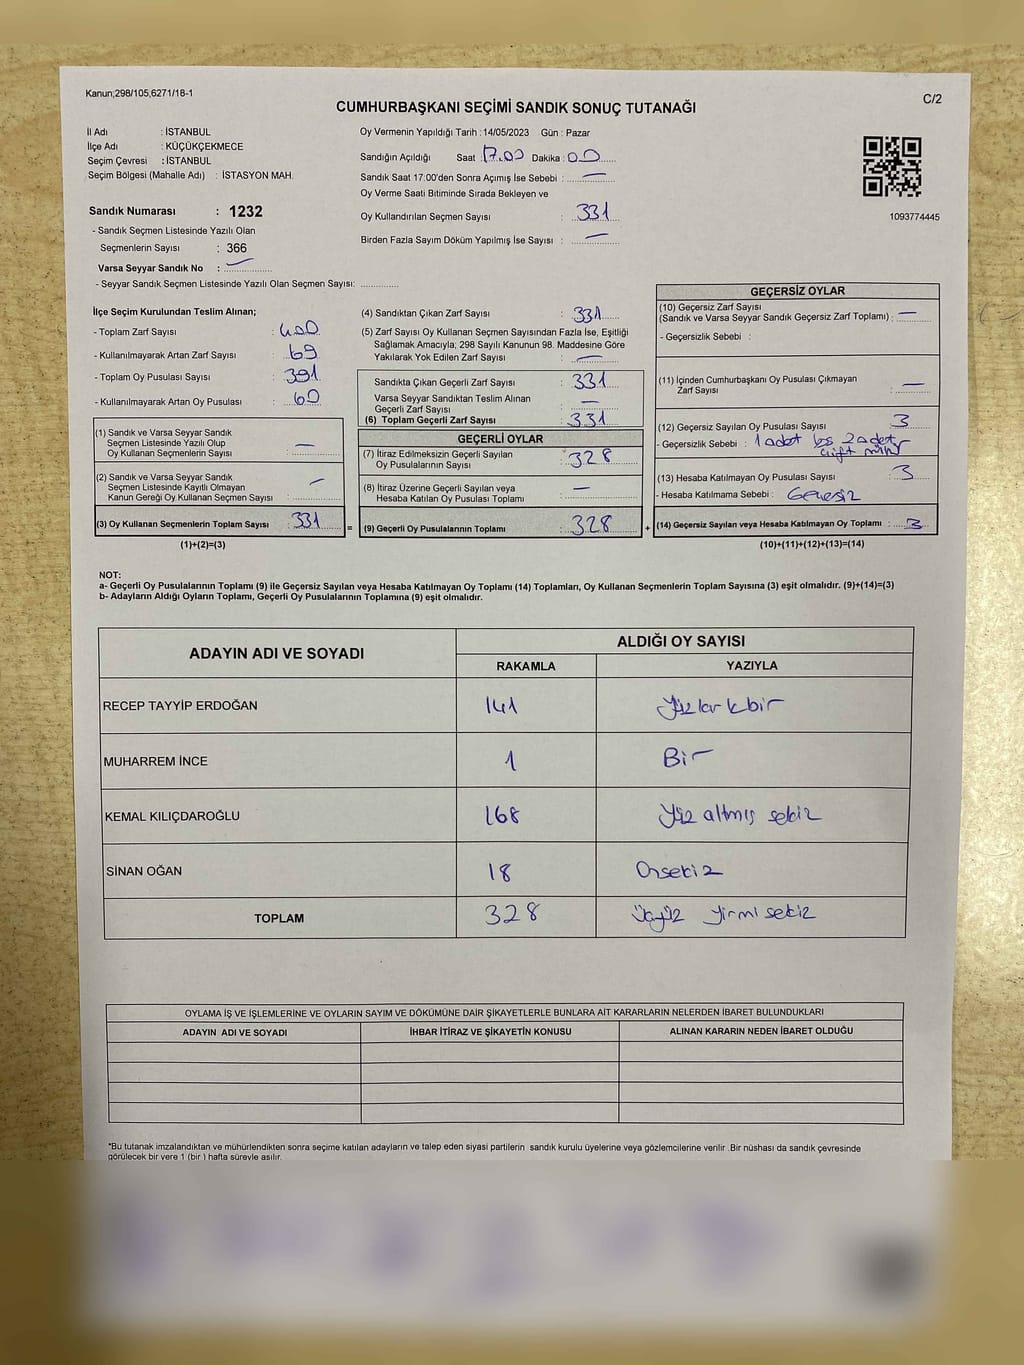 Kanun;298/105,6271/18-1
CUMHURBAŞKANI SEÇİMİ SANDIK SONUÇ TUTANAĞI
C/2
İl Adı : İSTANBUL
İlçe Adı : KÜÇÜKÇEKMECE
Seçim Çevresi : İSTANBUL
Seçim Bölgesi (Mahalle Adı) : İSTASYON MAH.
Sandık Numarası : 1232
- Sandık Seçmen Listesinde Yazılı Olan
Seçmenlerin Sayısı : 366
Varsa Seyyar Sandık No : –
- Seyyar Sandık Seçmen Listesinde Yazılı Olan Seçmen Sayısı: ..............
Oy Vermenin Yapıldığı Tarih : 14/05/2023 Gün : Pazar
Sandığın Açıldığı Saat : 17.00 Dakika : 00
Sandık Saat 17:00'den Sonra Açımış İse Sebebi : –
Oy Verme Saati Bitiminde Sırada Bekleyen ve
Oy Kullandırılan Seçmen Sayısı : 331
Birden Fazla Sayım Döküm Yapılmış İse Sayısı : –
1093774445
İlçe Seçim Kurulundan Teslim Alınan;
- Toplam Zarf Sayısı : 400
- Kullanılmayarak Artan Zarf Sayısı : 69
- Toplam Oy Pusulası Sayısı : 391
- Kullanılmayarak Artan Oy Pusulası : 60
(1) Sandık ve Varsa Seyyar Sandık
Seçmen Listesinde Yazılı Olup
Oy Kullanan Seçmenlerin Sayısı : –
(2) Sandık ve Varsa Seyyar Sandık
Seçmen Listesinde Kayıtlı Olmayan
Kanun Gereği Oy Kullanan Seçmen Sayısı : –
(3) Oy Kullanan Seçmenlerin Toplam Sayısı : 331
(1)+(2)=(3)
(4) Sandıktan Çıkan Zarf Sayısı : 331
(5) Zarf Sayısı Oy Kullanan Seçmen Sayısından Fazla İse, Eşitliği
Sağlamak Amacıyla; 298 Sayılı Kanunun 98. Maddesine Göre
Yakılarak Yok Edilen Zarf Sayısı : –
Sandıkta Çıkan Geçerli Zarf Sayısı : 331
Varsa Seyyar Sandıktan Teslim Alınan
Geçerli Zarf Sayısı : –
(6) Toplam Geçerli Zarf Sayısı : 331
GEÇERLİ OYLAR
(7) İtiraz Edilmeksizin Geçerli Sayılan
Oy Pusulalarının Sayısı : 328
(8) İtiraz Üzerine Geçerli Sayılan veya
Hesaba Katılan Oy Pusulası Toplamı : –
= (9) Geçerli Oy Pusulalarının Toplamı : 328 +
GEÇERSİZ OYLAR
(10) Geçersiz Zarf Sayısı
(Sandık ve Varsa Seyyar Sandık Geçersiz Zarf Toplamı) : –
- Geçersizlik Sebebi :
(11) İçinden Cumhurbaşkanı Oy Pusulası Çıkmayan
Zarf Sayısı : –
(12) Geçersiz Sayılan Oy Pusulası Sayısı : 3
- Geçersizlik Sebebi : 1 adet boş 2 adet
çift mühür
(13) Hesaba Katılmayan Oy Pusulası Sayısı : 3
- Hesaba Katılmama Sebebi :
(14) Geçersiz Sayılan veya Hesaba Katılmayan Oy Toplamı : 3
(10)+(11)+(12)+(13)=(14)
NOT:
a- Geçerli Oy Pusulalarının Toplamı (9) ile Geçersiz Sayılan veya Hesaba Katılmayan Oy Toplamı (14) Toplamları, Oy Kullanan Seçmenlerin Toplam Sayısına (3) eşit olmalıdır. (9)+(14)=(3)
b- Adayların Aldığı Oyların Toplamı, Geçerli Oy Pusulalarının Toplamına (9) eşit olmalıdır.
ADAYIN ADI VE SOYADI
ALDIĞI OY SAYISI
RAKAMLA YAZIYLA
RECEP TAYYİP ERDOĞAN 141 Yüzkırkbir
MUHARREM İNCE 1 Bir
KEMAL KILIÇDAROĞLU 168 Yüz altmış sekiz
SİNAN OĞAN 18 Onsekiz
TOPLAM 328 Üçyüz yirmi sekiz
OYLAMA İŞ VE İŞLEMLERİNE VE OYLARIN SAYIM VE DÖKÜMÜNE DAİR ŞİKAYETLERLE BUNLARA AİT KARARLARIN NELERDEN İBARET BULUNDUKLARI
ADAYIN ADI VE SOYADI İHBAR İTİRAZ VE ŞİKAYETİN KONUSU ALINAN KARARIN NEDEN İBARET OLDUĞU
*Bu tutanak imzalandıktan ve mühürlendikten sonra seçime katılan adayların ve talep eden siyasi partilerin sandık kurulu üyelerine veya gözlemcilerine verilir .Bir nüshası da sandık çevresinde
görülecek bir yere 1 (bir ) hafta süreyle asılır.